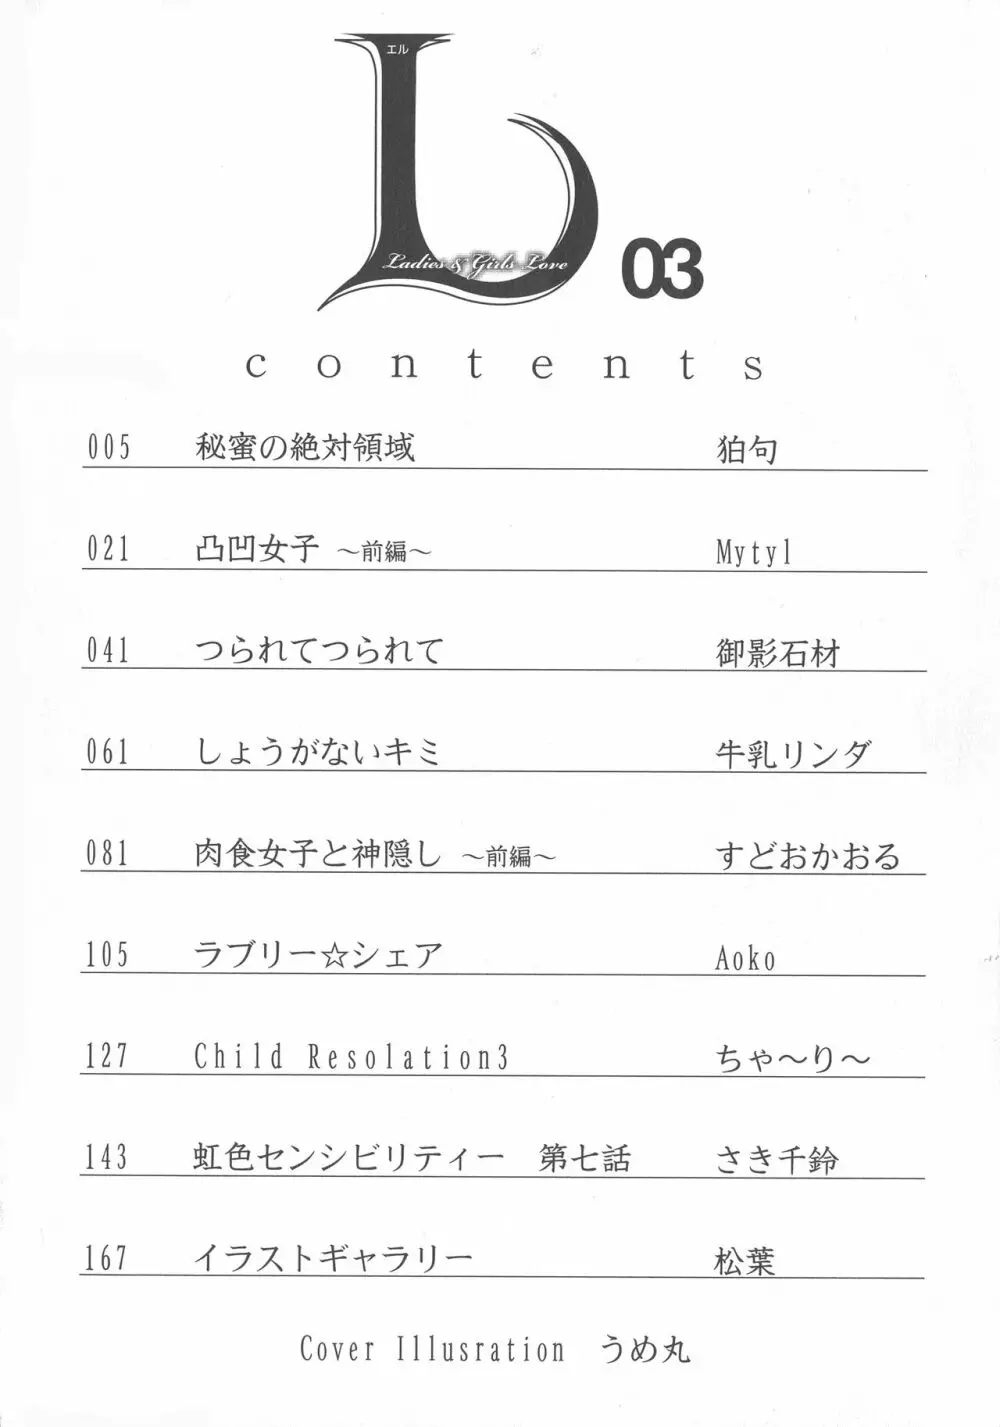 エル
Ladies & Girls Love
03
contents
005 秘蜜の絶対領域 狛句
021 凸凹女子 ～前編～ Mytyl
041 つられてつられて 御影石材
061 しょうがないキミ 牛乳リンダ
081 肉食女子と神隠し ～前編～ すどおかおる
105 ラブリー☆シェア Aoko
127 Child Resolation3 ちゃ～り～
143 虹色センシビリティー 第七話 さき千鈴
167 イラストギャラリー 松葉
Cover Illusration うめ丸